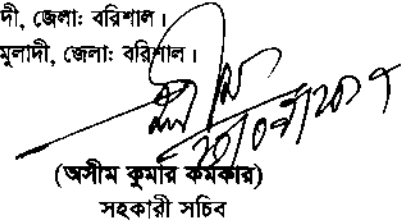 দী, জেলাঃ বরিশাল।
মুলাদী, জেলাঃ বরিশাল।
(অসীম কুমার কর্মকার)
সহকারী সচিব